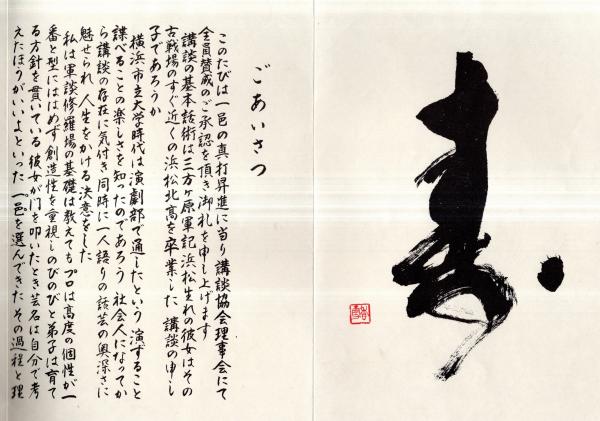 寿
ごあいさつ
このたびは一邑の真打昇進に当り講談協会理事会にて
全員賛成のご承認を頂き御礼を申し上げます
講談の基本話術は三方ヶ原軍記浜松生れの彼女はその
古戦場のすぐ近くの浜松北高を卒業した 講談の申し
子であろうか
横浜市立大学時代は演劇部で通したという 演ずること
諜べることの楽しさを知ったのであろう 社会人になってか
ら講談の存在に気付き同時に一人語りの話芸の奥深さに
魅せられ 人生をかける決意をした
私は軍談修羅場の基礎は教えてもプロは高度の個性が一
番と型にははめず創造性を重視しのびのびと弟子は育て
る方針を貫いている 彼女が門を叩いたとき芸名は自分で考
えたほうがいいよといった 一邑を選んできた その過程と理